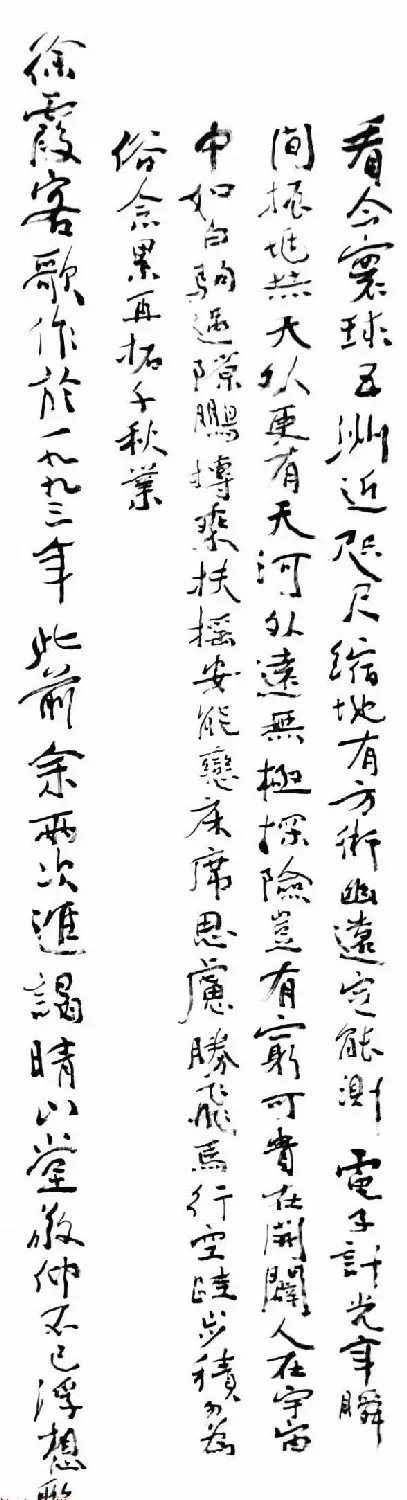 看今寰球五洲近咫尺縮地有方術幽遠定能測電子計光年瞬
間據地球天外更有天河外遠無極探險豈有窮可貴在開闢人在宇宙
中如白駒過隙鵬搏乘扶摇安能戀床席思慮勝飛馬行空跬步積不為
俗念累再拓千秋業
徐霞客歌作於一九九三年此前余兩次進謁晴山堂敬仰不已浮想聯